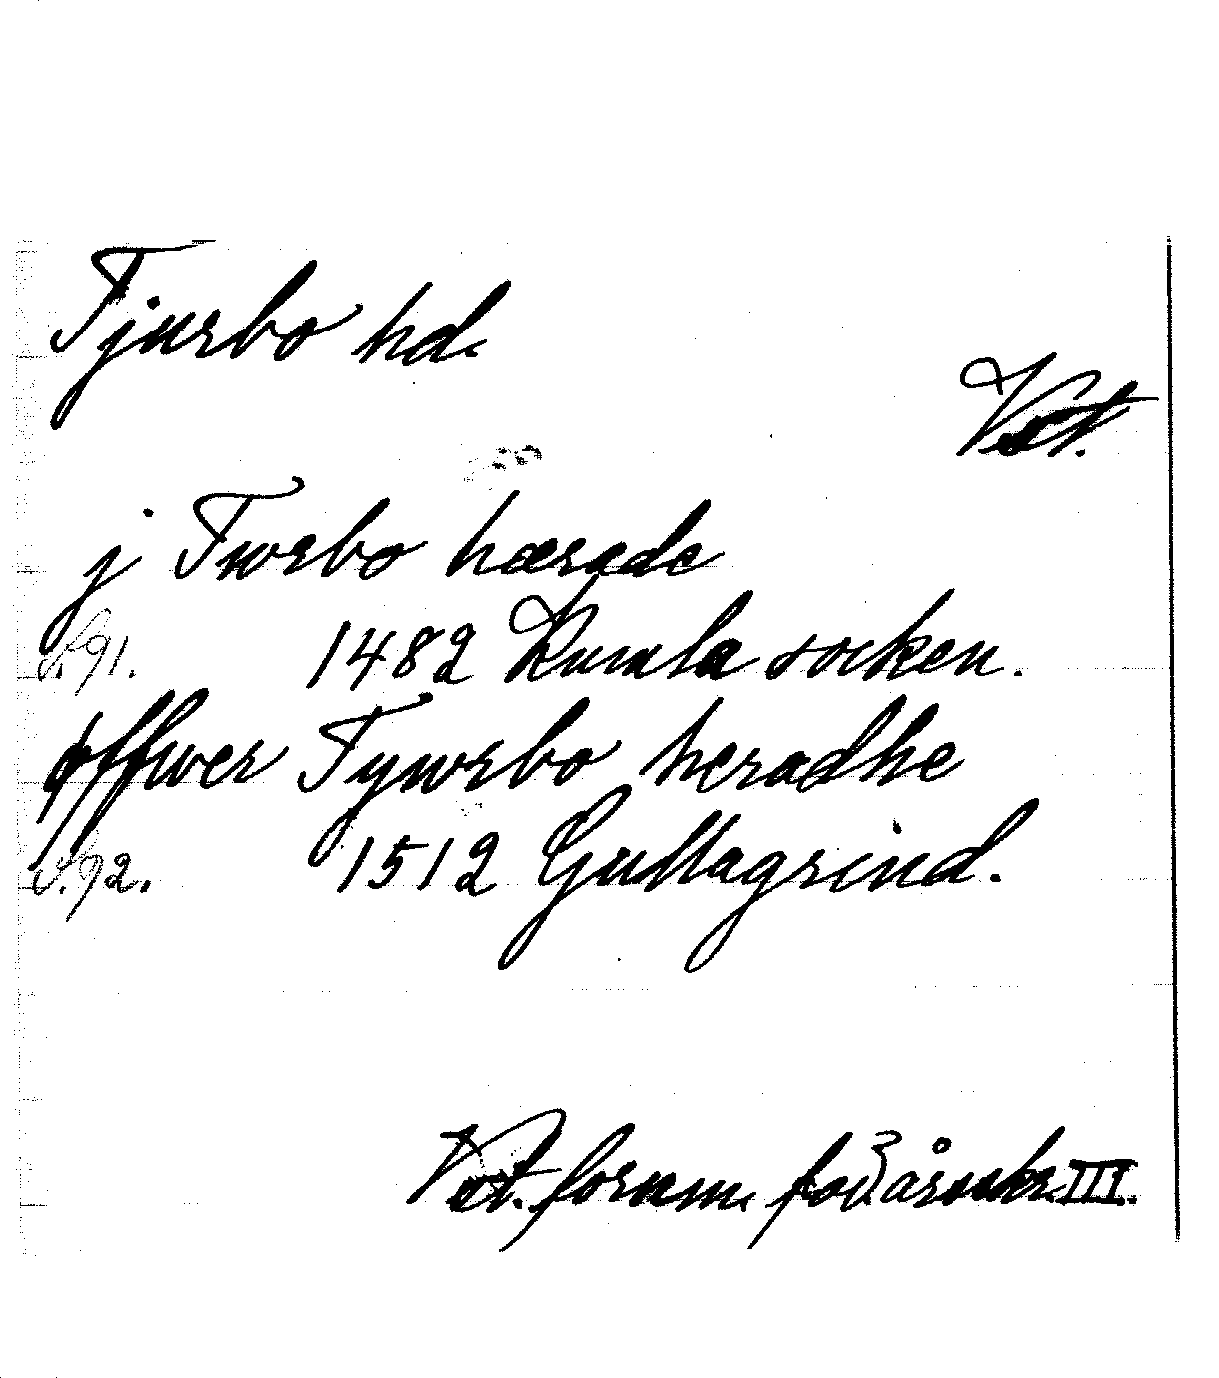 Tjurbo hd.
Vst.
j Twrbo hærade
S. 91. 1482 Kumla socken.
øffwer Tywrbo heradhe
S. 92. 1512 Gullagrind.
Vst. fornm. för. årsskr. III.